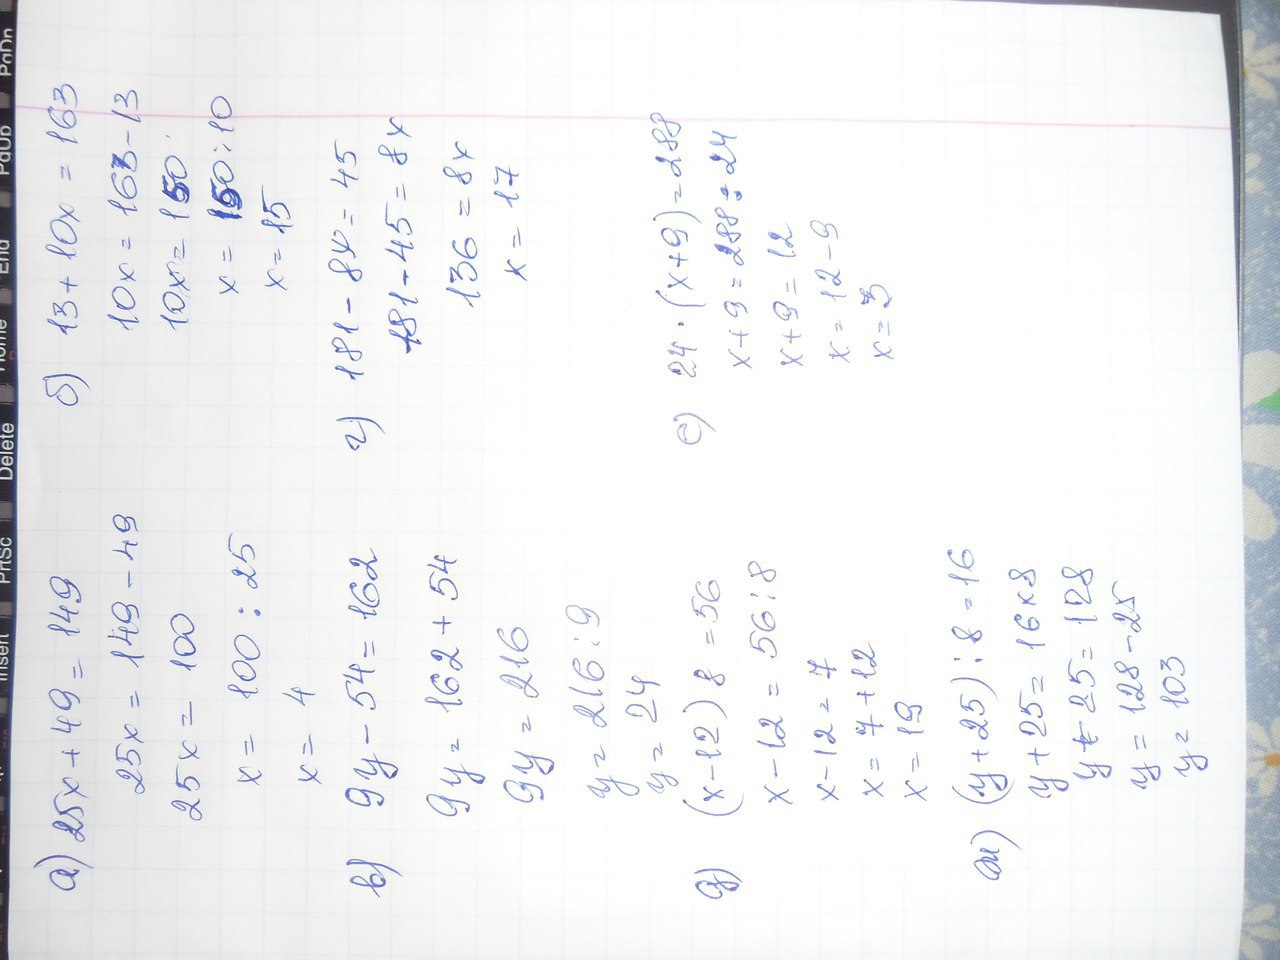 а) 25x + 49 = 149
25x = 149 - 49
25x = 100
x = 100 : 25
x = 4
б) 13 + 10x = 163
10x = 163 - 13
10x = 150
x = 150 : 10
x = 15
в) 9y - 54 = 162
9y = 162 + 54
9y = 216
y = 216 : 9
y = 24
г) 181 - 8x = 45
181 - 45 = 8x
136 = 8x
x = 17
д) (x - 12) 8 = 56
x - 12 = 56 : 8
x - 12 = 7
x = 7 + 12
x = 19
е) 24 · (x + 9) = 288
x + 9 = 288 : 24
x + 9 = 12
x = 12 - 9
x = 3
ж) (y + 25) : 8 = 16
y + 25 = 16 x 8
y + 25 = 128
y = 128 - 25
y = 103
Insert
PrtSc
Delete
Home
End
PgUp
PgDn